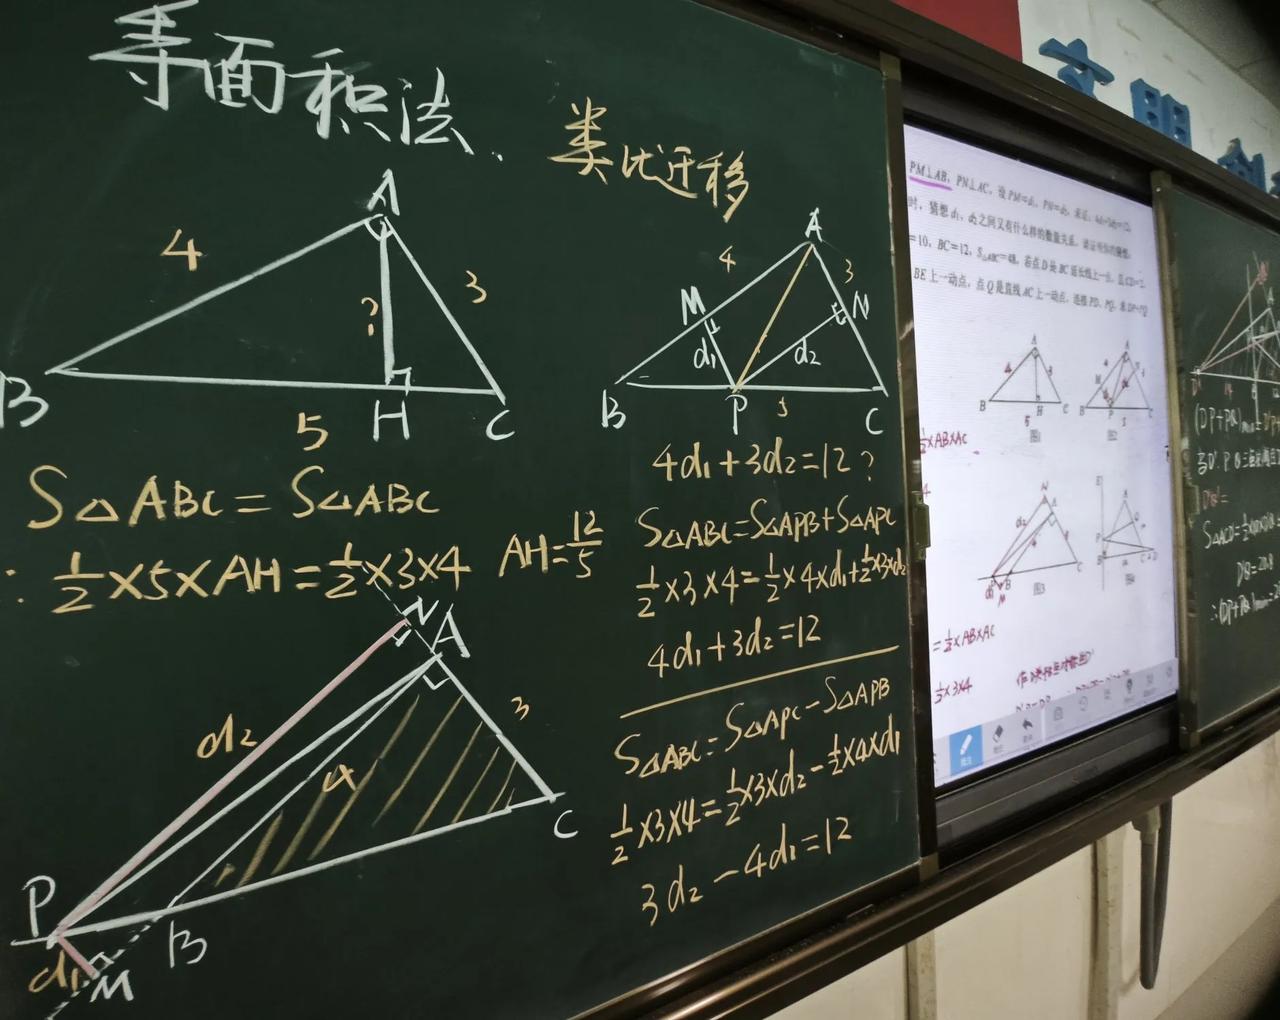 等面积法、
类比迁移
A
4
3
?
B
H
C
5
S△ABC=S△ABC
∴ 1/2×5×AH=1/2×3×4 AH=12/5
A
4
3
M
N
d₁
d₂
B
P
C
5
4d₁+3d₂=12?
S△ABC=S△APB+S△APC
1/2×3×4=1/2×4×d₁+1/2×3×d₂
4d₁+3d₂=12
S△ABC=S△APC-S△APB
1/2×3×4=1/2×3×d₂-1/2×4×d₁
3d₂-4d₁=12
N
A
d₂
3
4
C
P
B
d₁
M
文明
PM⊥AB, PN⊥AC, 设PM=d₁, PN=d₂, 求证: 4d₁+3d₂=12,
时, 猜想d₁, d₂之间又有什么样的数量关系, 请证明你的猜想,
=10, BC=12, S△ABC=48, 若点D是BC延长线上一点, 且CD=2,
BE上一动点, 点Q是直线AC上一动点, 连接PD, PQ, 求DP+PQ
1/2×AB×AC
=1/2×AB×AC
1/2×3×4